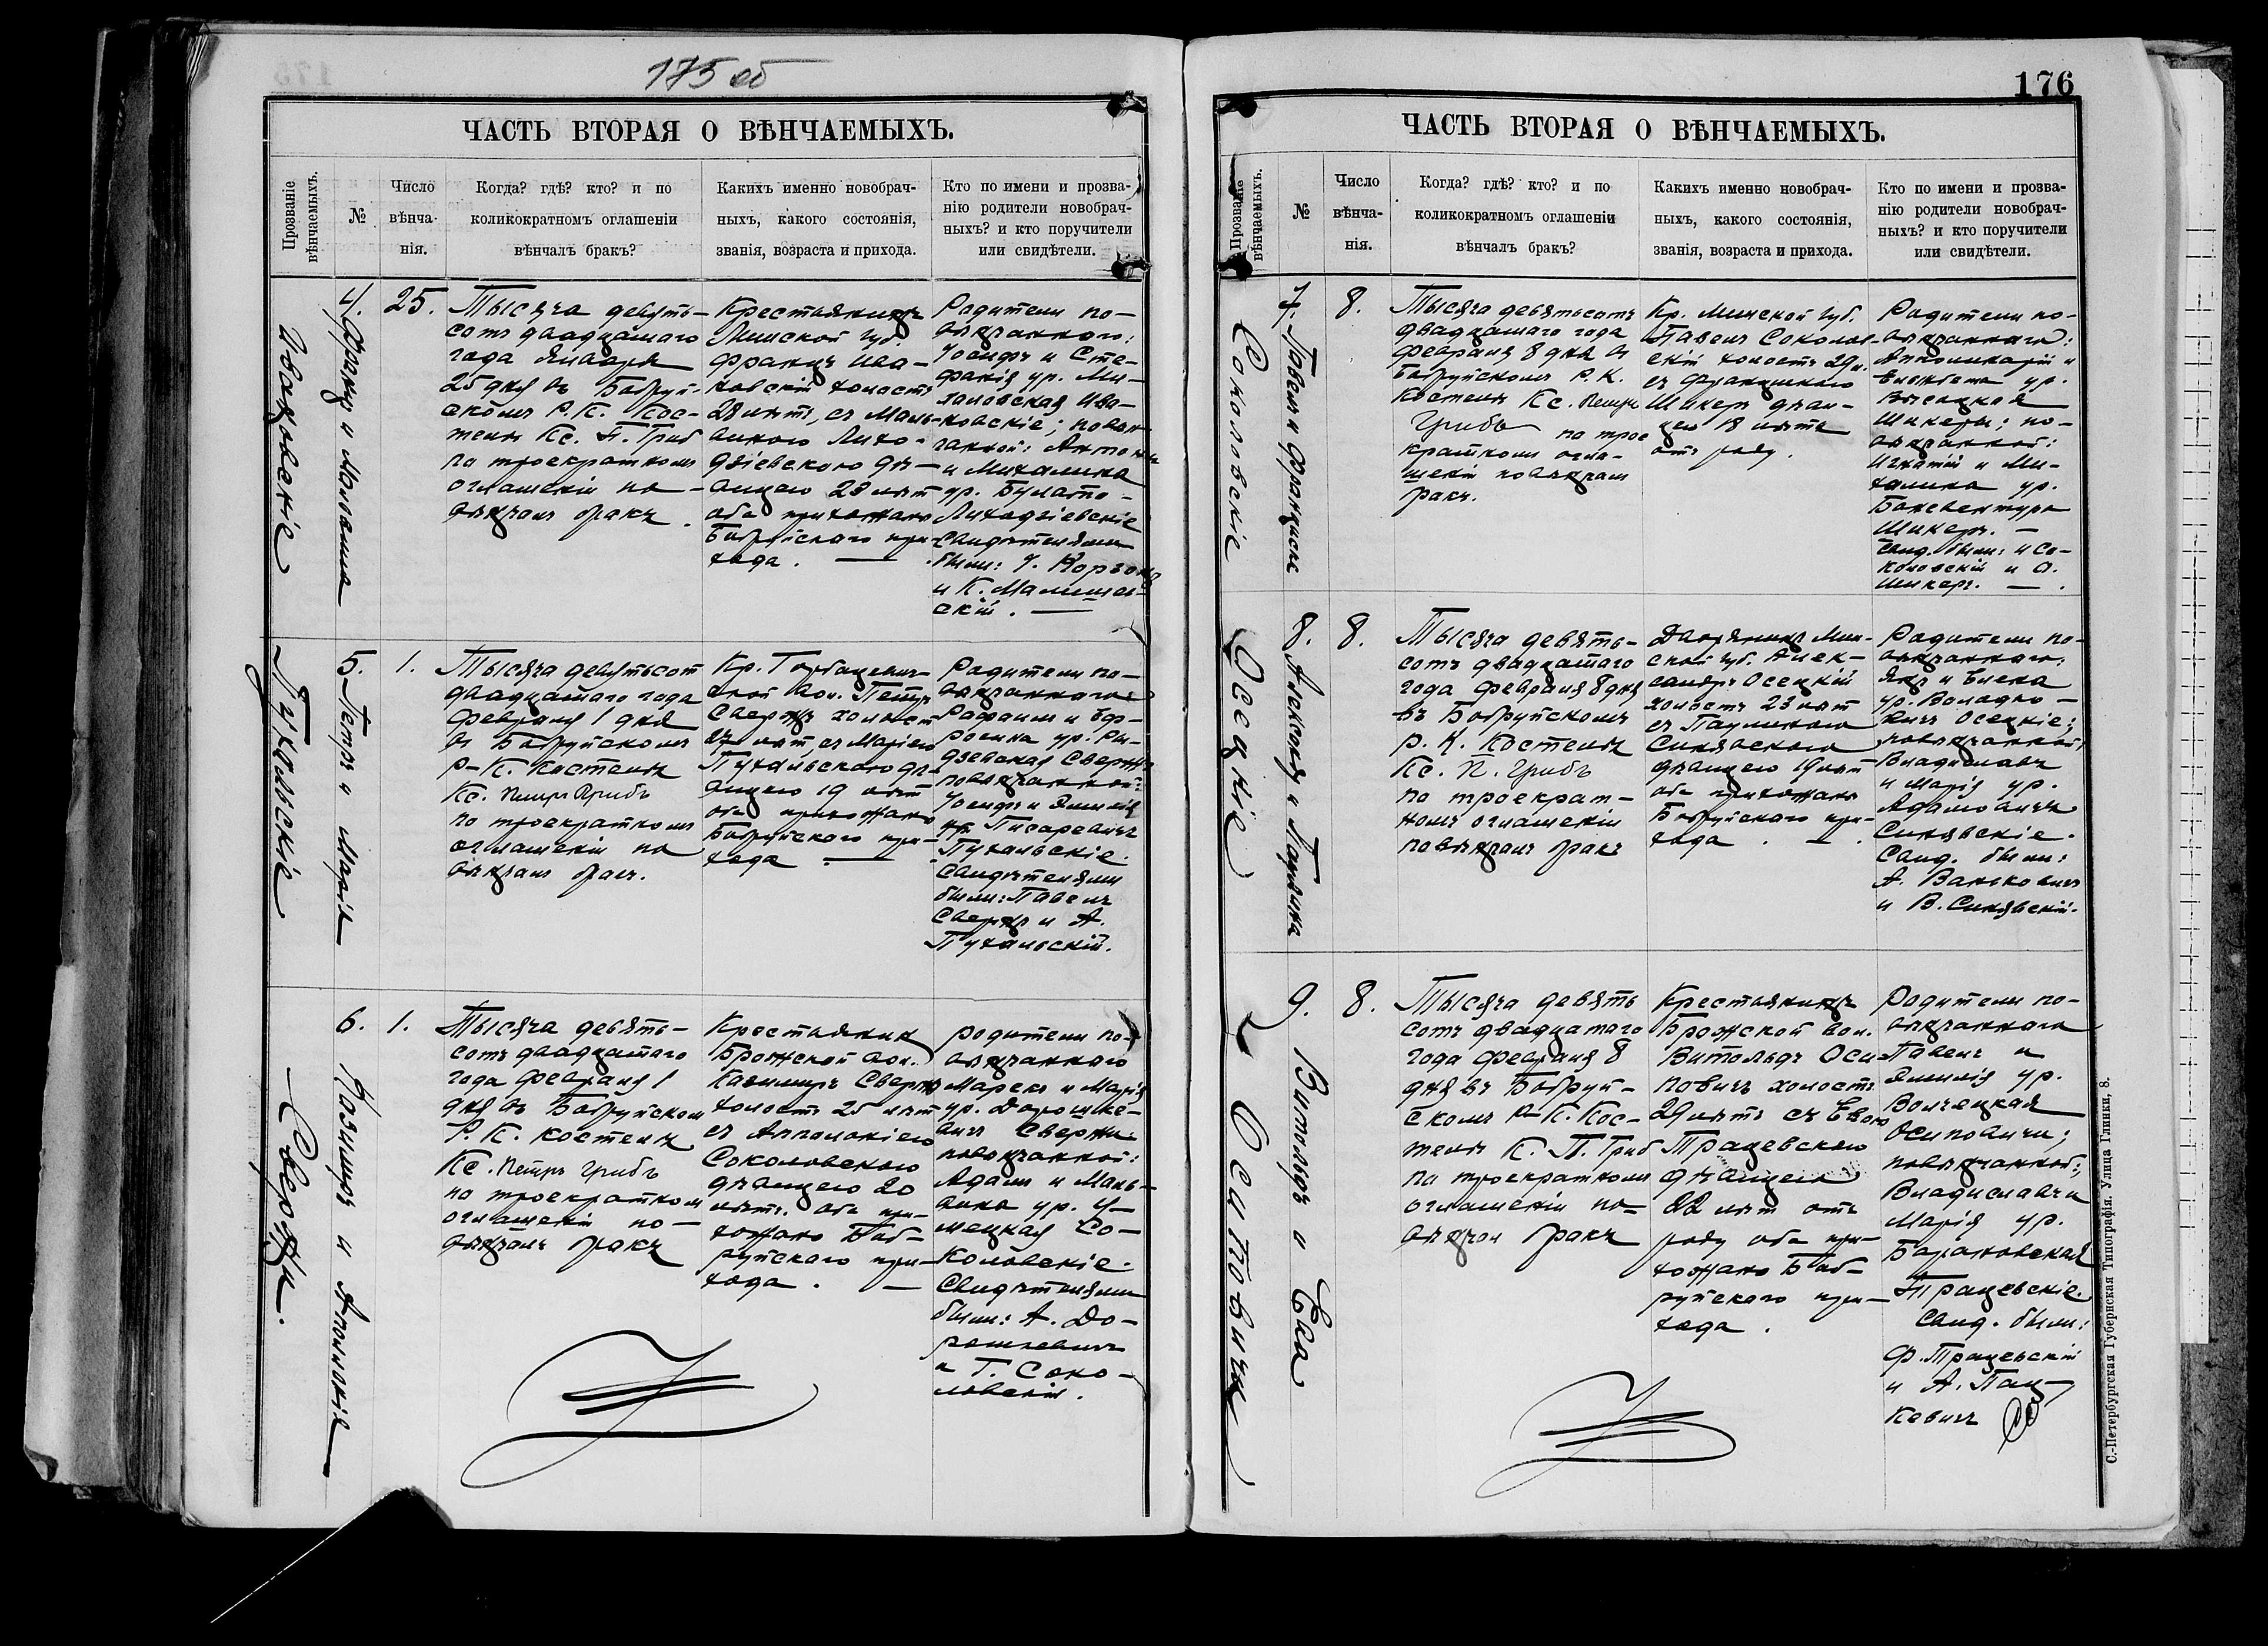 175 об
ЧАСТЬ ВТОРАЯ О ВѢНЧАЕМЫХЪ.
Прозваніе
вѣнчаемыхъ.
№
Число
вѣнча-
нія.
Когда? гдѣ? кто? и по
коликократномъ оглашеніи
вѣнчалъ бракъ?
Какихъ именно новобрач-
ныхъ, какого состоянія,
званія, возраста и прихода.
Кто по имени и прозва-
нію родители новобрач-
ныхъ? и кто поручители
или свидѣтели.
Ивановскіе
4. Францъ и Мальвина
25.
Тысяча девять-
сотъ двадцатаго
года Января
25 дня въ Бобруй-
скомъ Р.К. Кос-
телѣ Кс. П. Грибъ
по троекратномъ
оглашеніи по-
вѣнчалъ бракъ.
Крестьянинъ
Минской губ.
Францъ Ива-
новскій холостъ
28 лѣтъ, съ Маль-
виною Лихо-
дзіевскою дѣ-
вицею 23 лѣтъ
оба прихожане
Бобруйскаго при-
хода. —
Родители по-
вѣнчаннаго:
Іосифъ и Сте-
фанія ур. Ми-
хановская Ива-
новскіе; повѣн-
чанной: Антонъ
и Михалина
ур. Булато-
Лиходзіевскіе
Свидѣтелями
были: І. Корзонъ
и К. Малишев-
скій. —
Пухальскіе
5. Петръ и Марія
1.
Тысяча девятьсот
двадцатаго года
Февраля 1 дня
въ Бобруйскомъ
Р-К. Костелѣ
Кс. Петръ Грибъ
по троекратномъ
оглашеніи по
вѣнчалъ бракъ.
Кр. Горбацевич-
ской вол. Петръ
Свержъ холостъ
27 лѣт съ Маріею
Пухальскою дѣ-
вицею 19 лѣт
оба прихожане
Бобруйскаго при-
хода —
Родители по-
вѣнчаннаго
Рафаилъ и Еф-
росина ур. Ры-
дзевская Свержъ
повѣнчанной:
Іосифъ и Эмилія
ур. Писаревичъ
Пухальскіе.
Свидѣтелями
были: Павелъ
Свержъ и А.
Пухальскій.
Свержи.
6. Казимиръ и Аполонія
1.
Тысяча девять-
сотъ двадцатаго
года Февраля 1
дня въ Бобруйском
Р. К. костелѣ
Кс. Петръ Грибъ
по троекратном
оглашеніи по-
вѣнчалъ бракъ
Крестьянин
Брожской вол.
Казимиръ Свержъ
холостъ 25 лѣт
съ Апполоніею
Соколовскою
дѣвицею 20
лѣтъ. оба при-
хожане Боб-
руйскаго при-
хода. —
родители по-
вѣнчаннаго
Марекъ и Марія
ур. Дорошке-
вичъ Свержи.
повѣнчанной:
Адамъ и Маль-
вина ур. У-
мецкая Со-
коловскіе.
Свидѣтелями
были: А. До-
рошкевичъ
и Г. Соко-
ловскій.
176
ЧАСТЬ ВТОРАЯ О ВѢНЧАЕМЫХЪ.
Прозваніе
вѣнчаемыхъ.
№
Число
вѣнча-
нія.
Когда? гдѣ? кто? и по
коликократномъ оглашеніи
вѣнчалъ бракъ?
Какихъ именно новобрач-
ныхъ, какого состоянія,
званія, возраста и прихода.
Кто по имени и прозва-
нію родители новобрач-
ныхъ? и кто поручители
или свидѣтели.
Соколовскіе
7. Павелъ и Франциска
8.
Тысяча девятьсотъ
двадцатаго года
Февраля 8 дня въ
Бобруйскомъ Р. К.
Костелѣ Кс. Петръ
Грибъ по трое
кратномъ огла-
шеніи повѣнчалъ
бракъ.
Кр. Минской губ.
Павелъ Соколов-
скій холостъ 29 л.
съ Францишкою
Шикеръ дѣви-
цею 18 лѣтъ
отъ роду.
Родители по-
вѣнчаннаго:
Апполинарій и
Елизбета ур.
Высоцкая
Шикеры; по-
вѣнчанной:
Игнатій и Ми-
халина ур.
Бонавентура
Шикеръ. —
Свид. были: И Со-
коловскій и О.
Шикеръ. —
Осецкіе
8. Александръ и Паулина
8.
Тысяча девять-
сотъ двадцатаго
года Февраля 8 дня
въ Бобруйскомъ
Р. К. Костелѣ
Кс. П. Грибъ
по троекрат-
номъ оглашеніи
повѣнчалъ бракъ
Дворянинъ Мин-
ской губ. Алек-
сандръ Осецкій
холостъ 23 лѣт
съ Паулиною
Синявскою
дѣвицею 19 лѣт
оба прихожане
Бобруйскаго при-
хода. —
Родители по-
вѣнчаннаго:
Янъ и Елена
ур. Володко-
вичъ Осецкіе;
повѣнчанной:
Владиславъ
и Марія ур.
Адамовичъ
Синявскіе.
Свид. были:
А. Ваньковичъ
и В. Синявскій.
Осиповичи
9. Витольдъ и Ева
8.
Тысяча девять
сотъ двадцатаго
года Февраля 8
дня въ Бобруй-
скомъ Р-К. Кос-
телѣ К. П. Гриб
по троекратномъ
оглашеніи по-
вѣнчалъ бракъ
Крестьянинъ
Брожской вол.
Витольдъ Оси
повичъ холостъ
29 лѣтъ съ Евою
Працевскою
дѣвицею
22 лѣт отъ
роду оба при-
хожане Боб-
руйскаго при-
хода.
родители по-
вѣнчаннаго
Павелъ и
Эмилія ур.
Волчецкая
Осиповичи;
повѣнчанной:
Владиславъ и
Марія ур.
Барановская
Працевскіе.
Свид. были:
Ф. Працевскій
и А. Пац-
кевичъ
С.-Петербургская Губернская Типографія. Улица Глинки, 8.